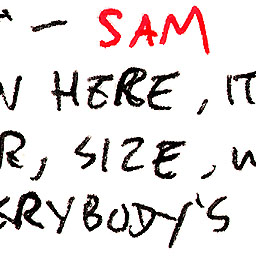 — SAM
N HERE, IT
R, SIZE, W
ERYBODY'S